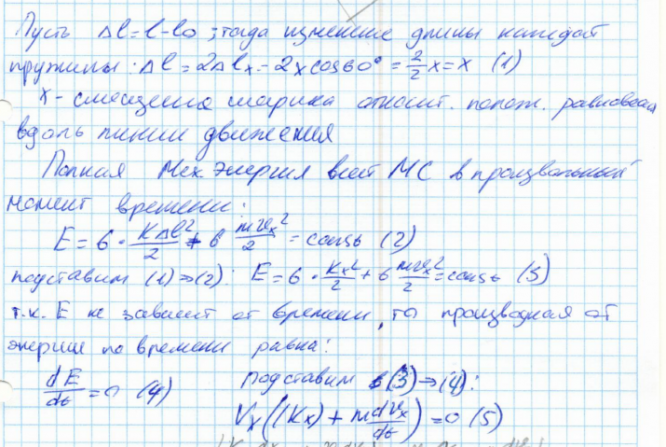 Пусть Δl = l - l₀, тогда изменение длины каждой
пружины: Δl = 2Δlₓ = 2x cos60° = 2/2 x = x (1)
x - смещение шарика относит. полож. равновесия
вдоль линии движения
Полная Мех. Энергия всей МС в произвольный
момент времени:
E = 6 · KΔl²/2 + 6 mvₓ²/2 = const (2)
подставим (1)→(2): E = 6 · Kx²/2 + 6 mvₓ²/2 = const (3)
т.к. E не зависит от времени, то производная от
энергии по времени равна:
dE/dt = 0 (4) подставим в (3)→(4):
Vₓ((Kx) + m dvₓ/dt) = 0 (5)